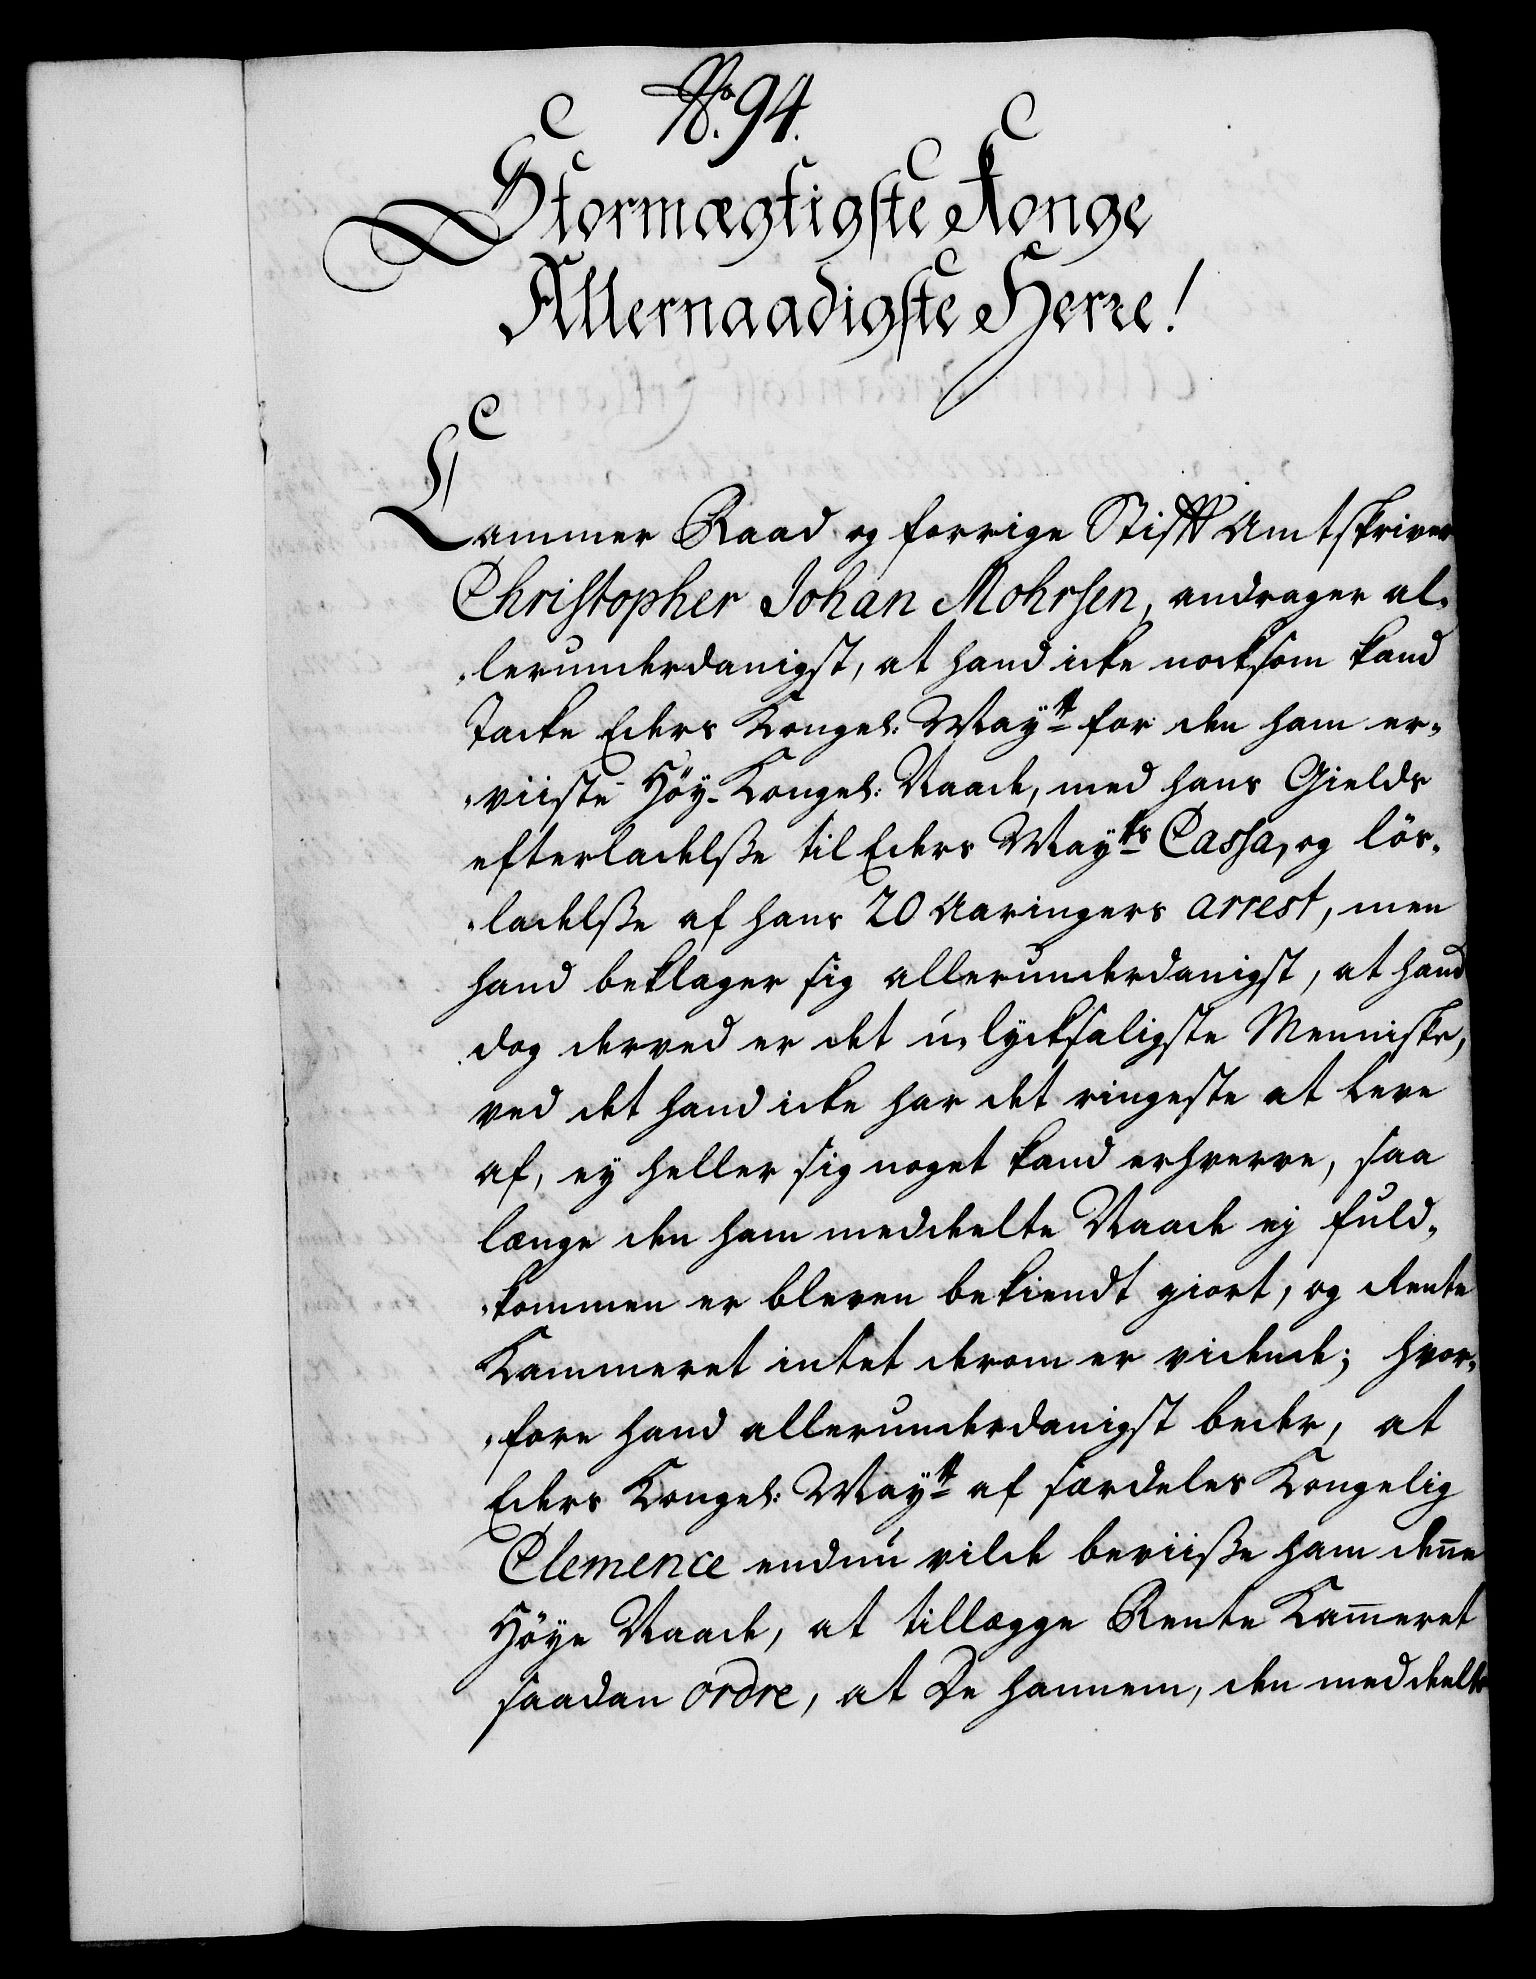 No. 94.
Stormægtigste Konge
Allernaadigste Herre!
Cammer Raad og forrige Stifft Amtskriver
Christopher Johan Mohrsen, andrager al-
-lerunderdanigst, at hand icke nocksom kand
tacke Eders Kongel: Maytt for den ham er-
-viiste Höy-Kongel: Naade, med hans Gields
efterladelsse til Eders Mayts Cassa, og lös-
-ladelsse af hans 20 Aaringers arrest, men
hand beklager sig allerunderdanigst, at hand
dog derved er det u-lycksaligste Menniske,
ved det hand icke har det ringeste at leve
af, ey heller sig noget kand erhverve, saa
længe den ham meddeelte Naade ej fuld-
-kommen er bleven bekiendt giort, og Rente
Kammeret intet derom er vidende; hvor-
-fore hand allerunderdanigst beder, at
Eders Kongel: Maytt af særdeles Kongelig
Clemence endnu vilde beviisse ham denne
Höye Naade, at tillægge Rente Kam̄eret
saadan ordre, at De hannem, den meddeelte